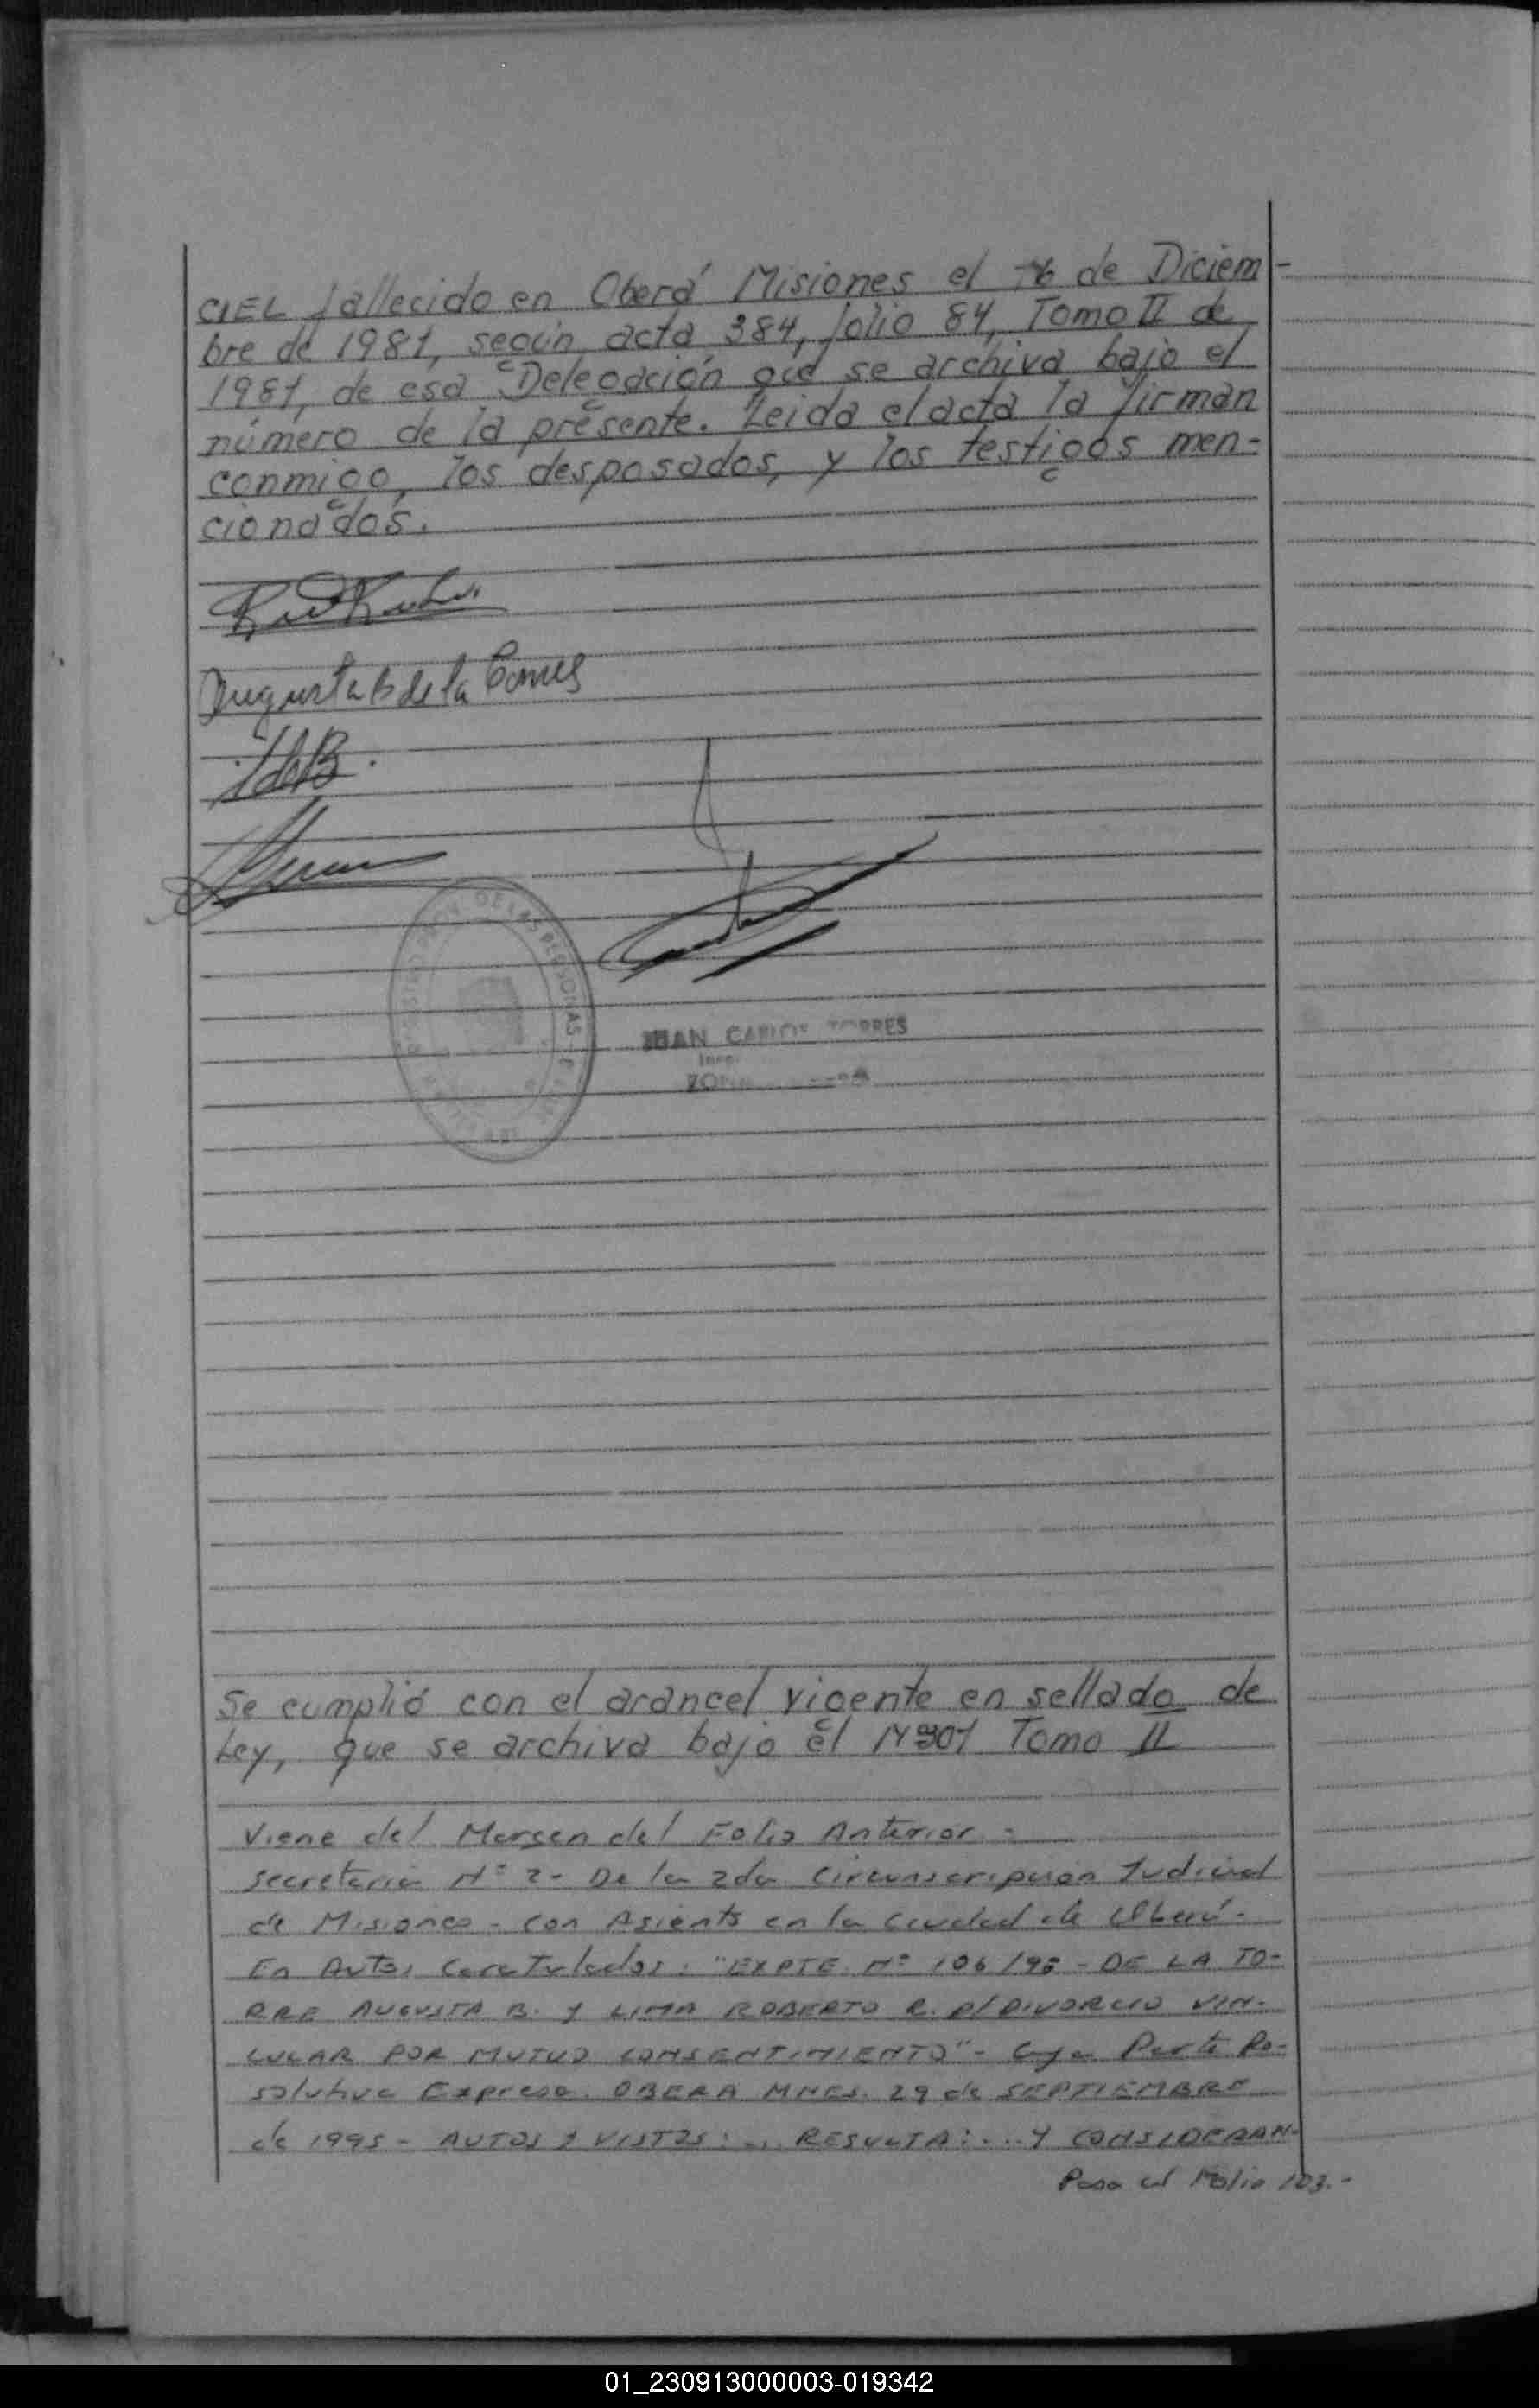 CIEL fallecido en Oberá Misiones el de Diciem-
bre de 1981, según acta 384, folio 84, Tomo II de
1981, de esa Delegación que se archiva bajo el
número de la présente. Leida el acta la firman
conmigo, los desposados, y los testigos men=
cionados.
Augusta B de la Torre
JUAN CARLOS TORRES
DE LAS PERSONAS
Se cumplió con el arancel vigente en sellado de
Ley, que se archiva bajo él Nº301 Tomo II
Viene del Margen del Folio Anterior =
Secretaria Nº 2- De la 2da Circunscripción Judicial
de Misiones - con Asiento en la Ciudad de Oberá.-
En Autos Caratulados: "EXPTE. Nº 106/95 - DE LA TO-
RRE AUGUSTA B. Y LIMA ROBERTO R. P/DIVORCIO VIN-
CULAR POR MUTUO CONSENTIMIENTO"- Cuya Parte Re-
solutiva Expresa: OBERA MNES. 29 de SEPTIEMBRE
de 1995 - AUTOS Y VISTOS: ... RESULTA: ... Y CONSIDERAN-
Pasa al Folio 103.-
01_230913000003-019342